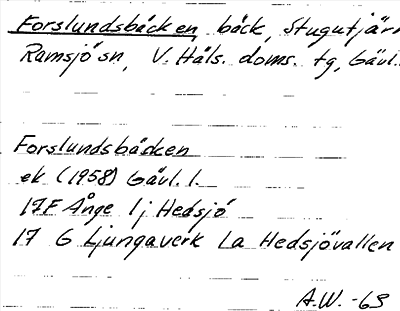 Forslundsbäcken, bäck, Stugutjärn
Ramsjö sn, V. Häls. doms. tg, Gävl.
Forslundsbäcken
ek (1958) Gävl. l.
17F Ånge 1j Hedsjö
17 G Ljungaverk La Hedsjövallen
A.W. -63